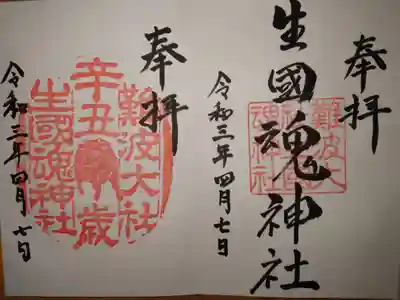 奉拝
生國魂神社
難波大社
生國魂神社
令和三年四月七日
奉拝
難波大社
辛丑歳
生國魂神社
令和三年四月七日